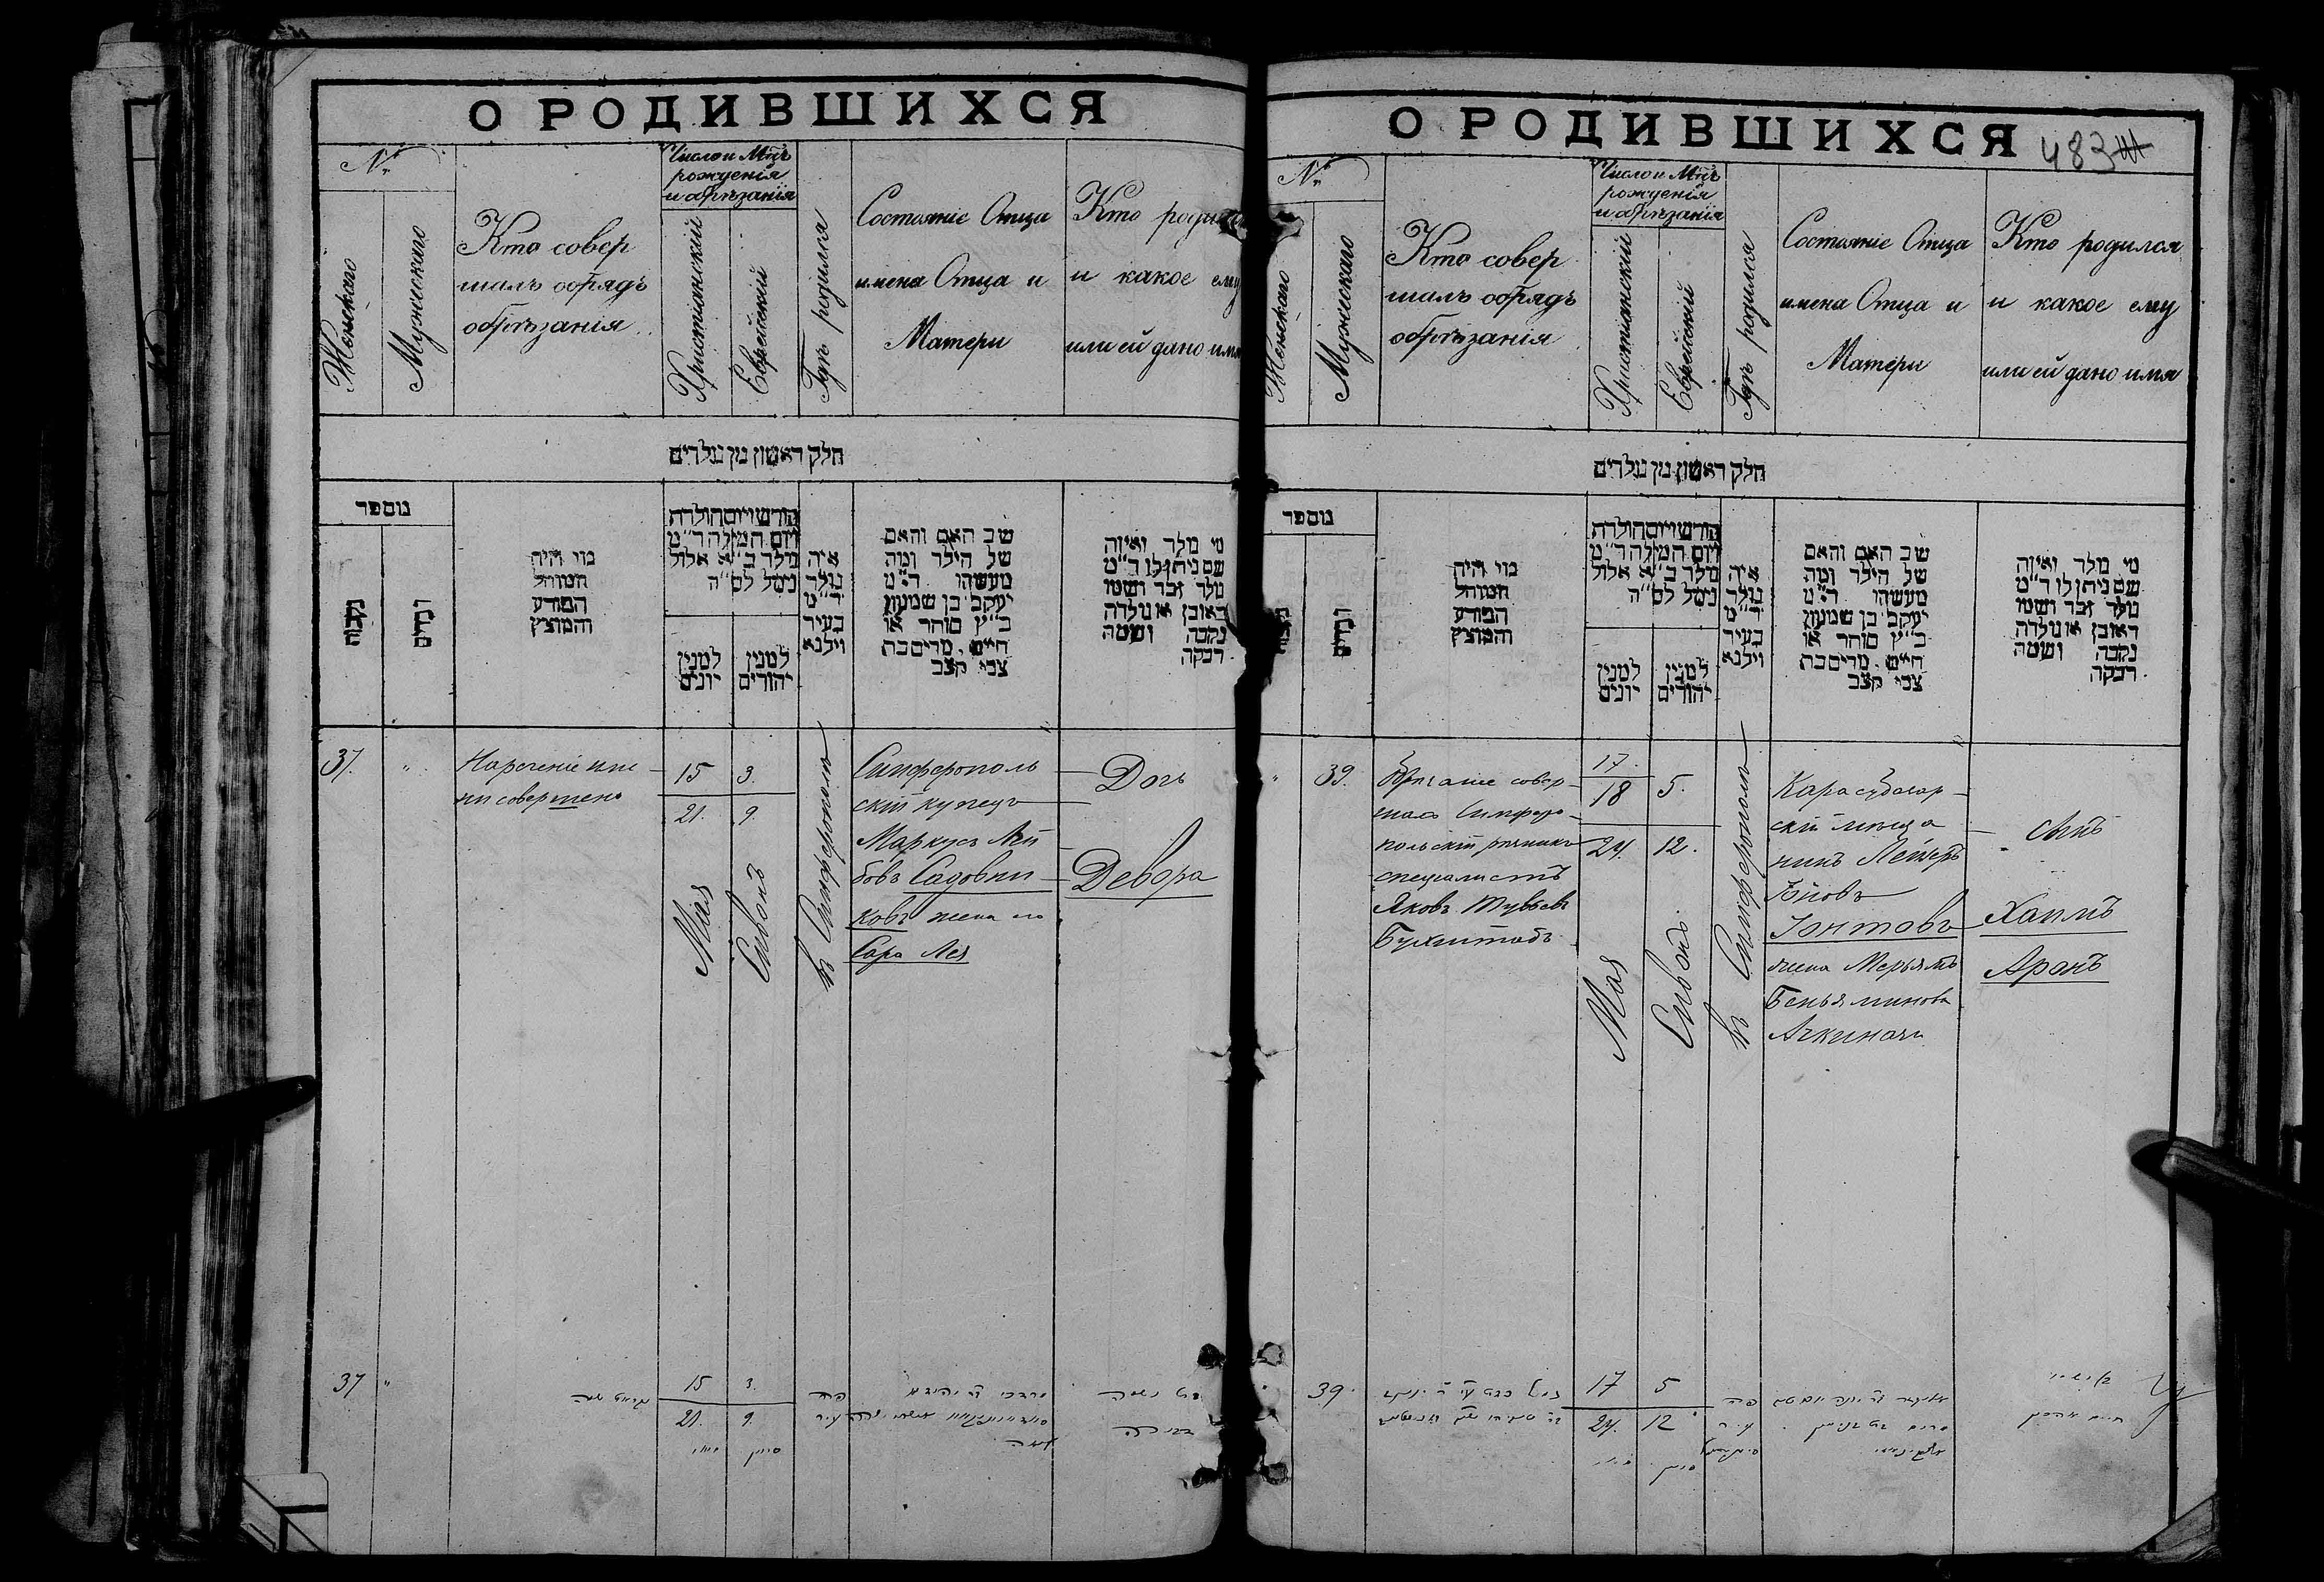 О РОДИВШИХСЯ
№
Женскаго
Мужскаго
Кто совер
шалъ обрядъ
обрѣзанія
Число и Мѣц
рожденія
и обрѣзанія
Христіанскій
Еврейскій
Гдѣ родился
Состояніе Отца
имена Отца и
Матери
Кто родился
и какое ему
или ей дано имя
חלק ראשון מן נולדים
נומפר
נקבות
זכרים
מי היה
המוהל
הפורע
והמוצץ
חודש ויום הולדת
ויום המילה ד״מ
נולד ב״א אלול
נימל לס״ה
למנין
יונים
למנין
יהודים
איה
נולד
ד״מ
בעיר
וילנא
שב האם והאם
של הילד ומה
מעשהו ד״מ
יעקב בן שמעון
כ״ץ סוחר או
חיים, מרים בת
צבי קצב
מי נולד ואיזה
שם ניתן לו ד״מ
נולד זכר ושמו
ראובן או נולדה
נקבה ושמה
רבקה
37.
Нареченіе име
ни совершено
15 3.
21. 9.
Мая
Сивонъ
въ Симферополь
Симферополь
скій купецъ
Маркусъ Лей
бовъ Садовни
ковъ жена его
Сара Лея
Дочь
Девора
37
15 3.
21. 9.
О РОДИВШИХСЯ 483
№
Женскаго
Мужскаго
Кто совер
шалъ обрядъ
обрѣзанія
Число и Мѣц
рожденія
и обрѣзанія
Христіанскій
Еврейскій
Гдѣ родился
Состояніе Отца
имена Отца и
Матери
Кто родился
и какое ему
или ей дано имя
חלק ראשון מן נולדים
נומפר
זכרים
מי היה
המוהל
הפורע
והמוצץ
חודש ויום הולדת
ויום המילה ד״מ
נולד ב״א אלול
נימל לס״ה
למנין
יונים
למנין
יהודים
איה
נולד
ד״מ
בעיר
וילנא
שב האם והאם
של הילד ומה
מעשהו ד״מ
יעקב בן שמעון
כ״ץ סוחר או
חיים, מרים בת
צבי קצב
מי נולד ואיזה
שם ניתן לו ד״מ
נולד זכר ושמו
ראובן או נולדה
נקבה ושמה
רבקה
39.
совер
шалъ Симферо
польскій
специалистъ
Яковъ Тувьевъ
Бухштабъ
17.
18 5.
24. 12.
Мая
Сивонъ
въ Симферополь
Карасубазар
скій меща
нинъ Лейзеръ
Іонтовъ
жена Мерьямъ
Беньяминова
Ачкинази
сынъ
Хаимъ
Аронъ
39.
17 5
24. 12